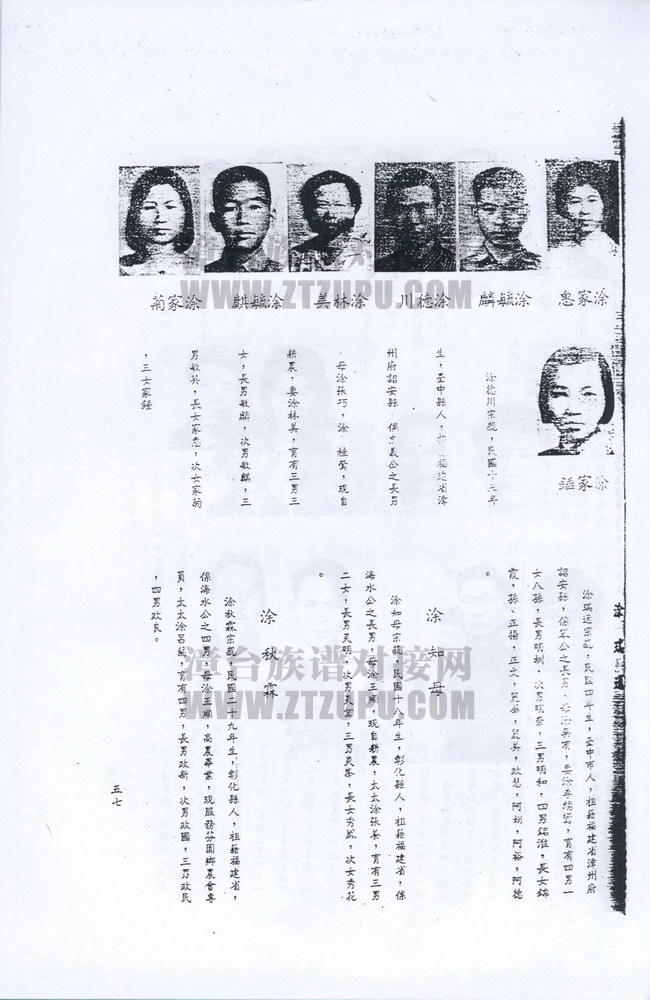 涂家惠
涂毓麟
涂德川
涂林美
涂毓麒
涂家菊
涂家錘
涂德川宗親，民國十六年
生，臺中縣人，祖籍福建省漳
州府詔安縣，係忠義公之長男
，母涂張巧，涂 桂瑩，現自
耕農，妻涂林美，育有三男三
女，長男敏麟，次男敏麒，三
男敏英，長女家惠，次女家菊
，三女家錘
涂瑞運
涂瑞運宗親，民國四年生，臺中市人，祖籍福建省漳州府
詔安縣，係 公之長男，母涂吳有，妻涂李 ，育有四男一
女八孫，長男明圳，次男明榮，三男明和，四男銘淮，長女錦
霞，孫，正揚，正文， ， 美，政慧，阿 ，阿裕，阿德
。
涂知母
涂知母宗親，民國十八年生，彰化縣人，祖籍福建省，係
海水公之長男，母涂王 ，現自耕農，太太涂張 ，育有三男
二女，長男炎明，次男炎堂，三男炎峯，長女秀 ，次女秀花
。
涂秋霖
涂秋霖宗親，民國二十九年生，彰化縣人，祖籍福建省，
係海水公之四男，母涂王 ，高農畢業，現服務芬園鄉農會專
員，太太涂呂 ，育有四男，長男政新，次男政國，三男政民
，四男政民。
五七
漳台族谱对接网
WWW.ZTZUPU.COM
漳台族谱对接网
WWW.ZTZUPU.COM